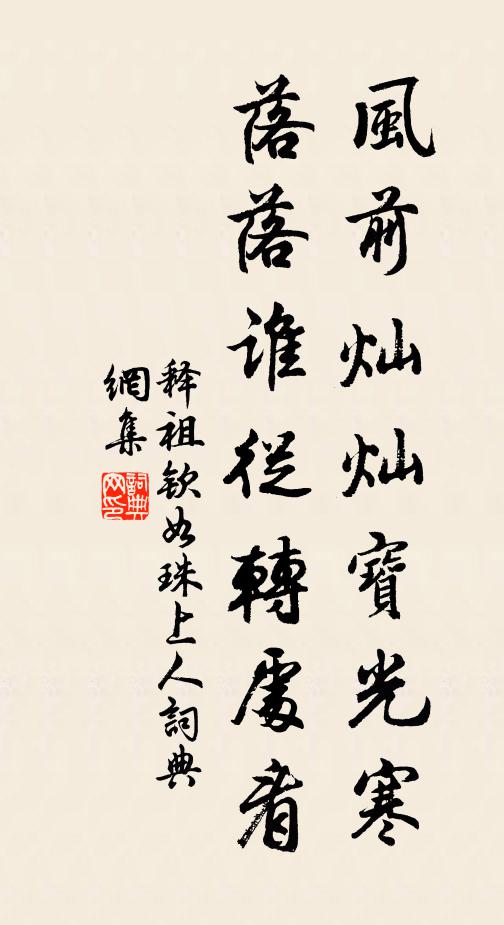 風前灿灿寶光寒
落落誰從轉處看
释祖钦如珠上人詞典
網集
詞典
网印